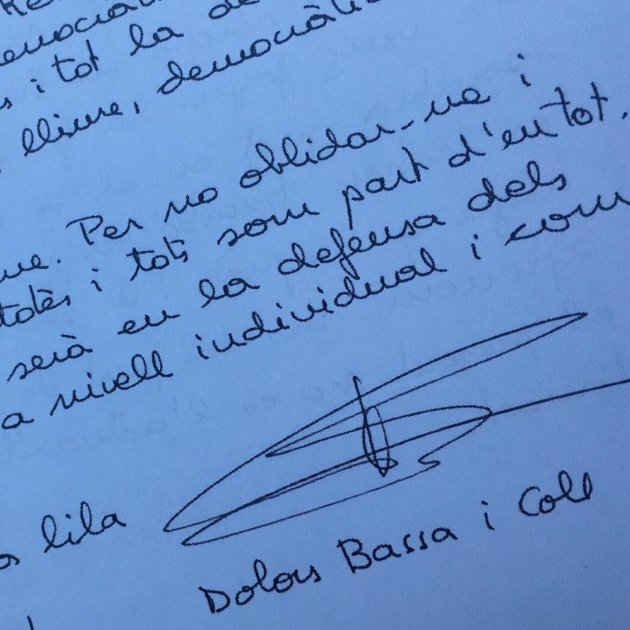 i tot la de
lliure, democràti
Per no oblidar-ne i
totes i tots som part d'en tot.
serà en la defensa dels
a nivell individual i com
lila
Dolors Bassa i Coll